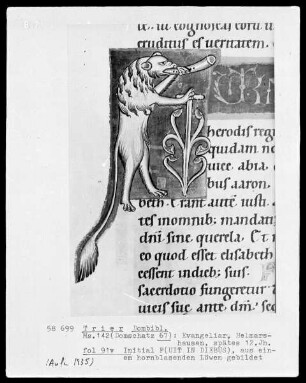 te. ut cognoscat eorū u
eruditus es ueritatem.
herodis reg
quidam ne
uice abia.
bus aaron.
beth. Erant autē iusti
tes in omnib; mandati
dni sine querela. Et n
eo quod esset elisabeth
cessent in dieb; suis.
sacerdotio fungeretur
uetudinē
58 699 Trier Dombibl.
Ms.142(Domschatz 67): Evangeliar, Helmars-
hausen, spätes 12.Jh.
fol 91v Initial F(UIT IN DIEBUS), aus ein-
em hornblasenden Löwen gebildet
(A.R. 1935)